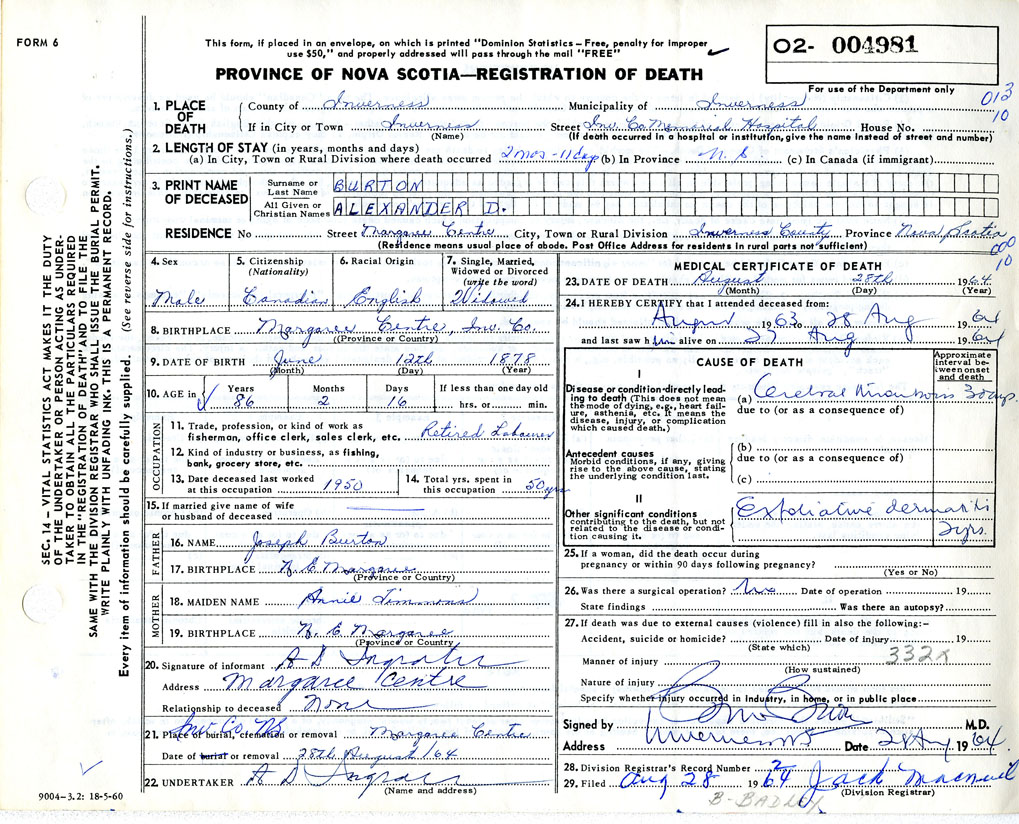 FORM 6
This form, if placed in an envelope, on which is printed "Dominion Statistics – Free, penalty for improper
use $50," and properly addressed will pass through the mail "FREE"
PROVINCE OF NOVA SCOTIA—REGISTRATION OF DEATH
O2- 004981
For use of the Department only
013
10
1. PLACE OF DEATH
County of Inverness Municipality of Inverness
If in City or Town Inverness Street Inv. Co Memorial Hospital House No.
(Name) (If death occurred in a hospital or institution, give the name instead of street and number)
2. LENGTH OF STAY (in years, months and days)
(a) In City, Town or Rural Division where death occurred 2 mos - 11 days (b) In Province N. S. (c) In Canada (if immigrant)
3. PRINT NAME OF DECEASED
Surname or Last Name BURTON
All Given or Christian Names ALEXANDER D.
RESIDENCE No Street Margaree Centre City, Town or Rural Division Inverness County Province Nova Scotia
(Residence means usual place of abode. Post Office Address for residents in rural parts not sufficient)
000
10
4. Sex Male
5. Citizenship (Nationality) Canadian
6. Racial Origin English
7. Single, Married, Widowed or Divorced (write the word) Widowed
8. BIRTHPLACE Margaree Centre, Inv. Co.
(Province or Country)
9. DATE OF BIRTH June 12th 1878
(Month) (Day) (Year)
10. AGE in Years 86 Months 2 Days 16 If less than one day old hrs. or min.
OCCUPATION
11. Trade, profession, or kind of work as fisherman, office clerk, sales clerk, etc. Retired Labourer
12. Kind of industry or business, as fishing, bank, grocery store, etc.
13. Date deceased last worked at this occupation 1950
14. Total yrs. spent in this occupation 50 yrs
15. If married give name of wife or husband of deceased
FATHER
16. NAME Joseph Burton
17. BIRTHPLACE N. E Margaree
(Province or Country)
MOTHER
18. MAIDEN NAME Annie Timmons
19. BIRTHPLACE N. E Margaree
(Province or Country)
20. Signature of informant A D Ingraham
Address Margaree Centre
Relationship to deceased None
Inv Co. NS
21. Place of burial, cremation or removal Margaree Centre
Date of burial or removal 28th August /64
22. UNDERTAKER A D Ingraham
(Name and address)
9004-3.2: 18-5-60
MEDICAL CERTIFICATE OF DEATH
23. DATE OF DEATH August 28th 1964
(Month) (Day) (Year)
24. I HEREBY CERTIFY that I attended deceased from:
August 1963 to 28 Aug 1964
and last saw him alive on 27 Aug 1964
CAUSE OF DEATH
Approximate interval between onset and death
I
Disease or condition directly leading to death (This does not mean the mode of dying, e.g., heart failure, asthenia, etc. It means the disease, injury, or complication which caused death.)
(a) Cerebral Thrombosis 30 days.
due to (or as a consequence of)
Antecedent causes
Morbid conditions, if any, giving rise to the above cause, stating the underlying condition last.
(b)
due to (or as a consequence of)
(c)
II
Other significant conditions contributing to the death, but not related to the disease or condition causing it.
Exfoliative dermatitis
2 yrs.
25. If a woman, did the death occur during
pregnancy or within 90 days following pregnancy?
(Yes or No)
26. Was there a surgical operation? No Date of operation 19
State findings Was there an autopsy?
27. If death was due to external causes (violence) fill in also the following:-
Accident, suicide or homicide? Date of injury 19
(State which)
332x
Manner of injury
(How sustained)
Nature of injury
Specify whether injury occurred in Industry, in home, or in public place
Signed by M.D.
Address Inverness NS Date 28 Aug 1964
28. Division Registrar's Record Number
29. Filed Aug 28 1964 Jack MacNeil
(Division Registrar)
B-BADLEY
SEC. 14 – VITAL STATISTICS ACT MAKES IT THE DUTY
OF THE UNDERTAKER OR PERSON ACTING AS UNDER-
TAKER TO OBTAIN ALL THE PARTICULARS REQUIRED
IN THE "REGISTRATION OF DEATH" AND TO FILE THE
SAME WITH THE DIVISION REGISTRAR WHO SHALL ISSUE THE BURIAL PERMIT.
WRITE PLAINLY WITH UNFADING INK. THIS IS A PERMANENT RECORD.
Every item of information should be carefully supplied. (See reverse side for instructions.)